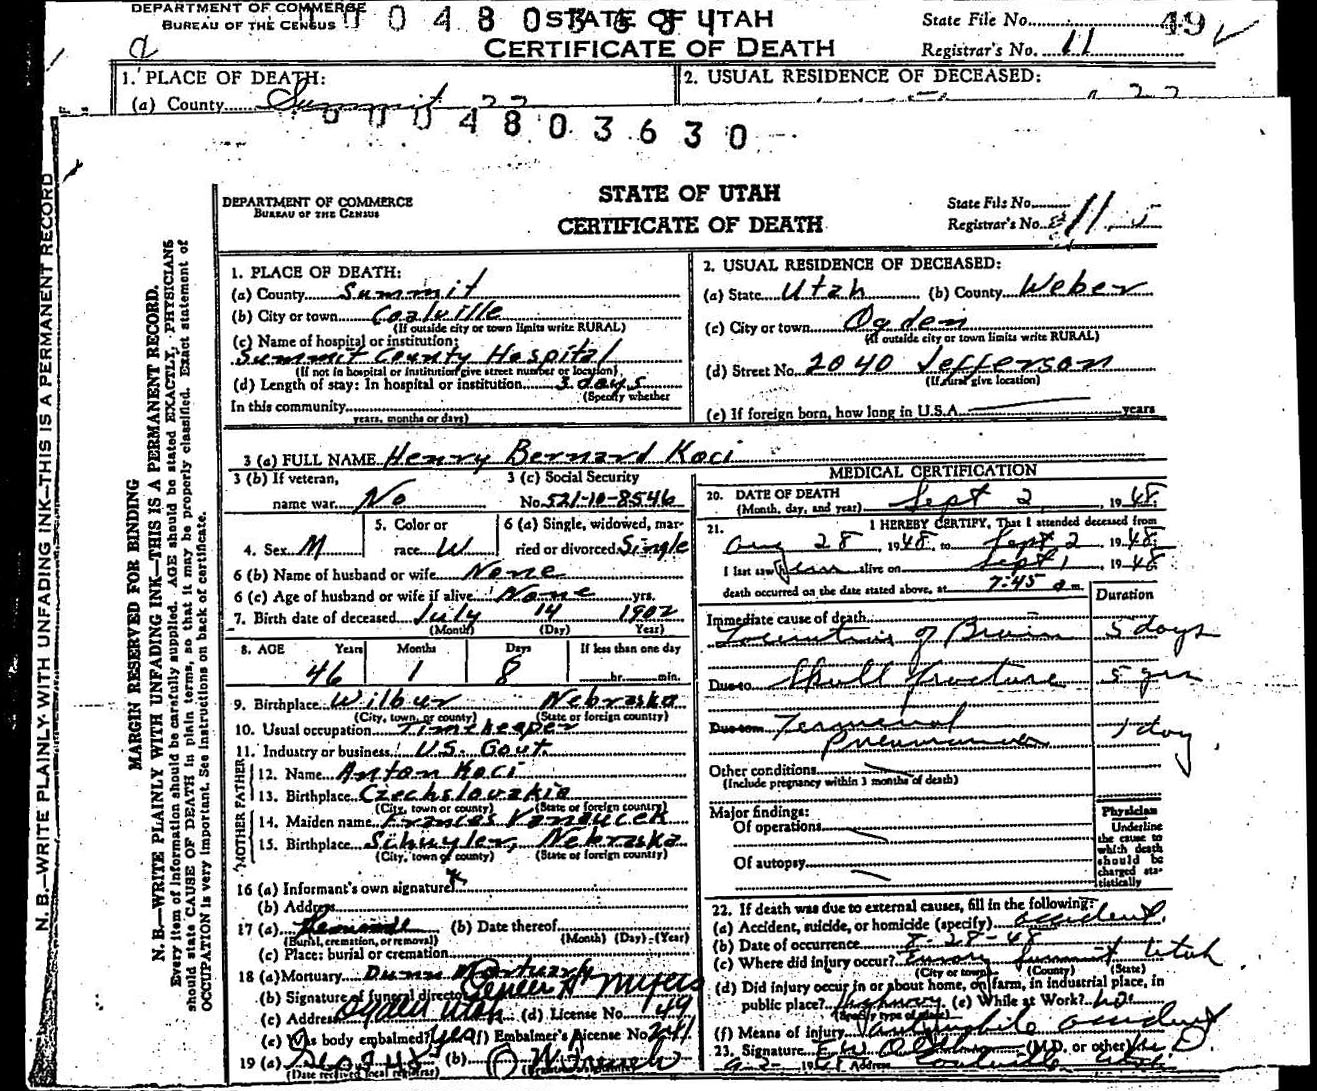 DEPARTMENT OF COMMERCE
BUREAU OF THE CENSUS
STATE OF UTAH
CERTIFICATE OF DEATH
State File No. 49
Registrar's No. 11
1. PLACE OF DEATH:
(a) County Summit 22
2. USUAL RESIDENCE OF DECEASED:
0 0 4 8 0 3 6 3 0
DEPARTMENT OF COMMERCE
BUREAU OF THE CENSUS
STATE OF UTAH
CERTIFICATE OF DEATH
State File No.
Registrar's No. 11
N. B.—WRITE PLAINLY WITH UNFADING INK—THIS IS A PERMANENT RECORD
MARGIN RESERVED FOR BINDING
N. B.—WRITE PLAINLY WITH UNFADING INK—THIS IS A PERMANENT RECORD.
Every item of information should be carefully supplied. AGE should be stated EXACTLY, PHYSICIANS
should state CAUSE OF DEATH in plain terms, so that it may be properly classified. Exact statement of
OCCUPATION is very important. See instructions on back of certificate.
1. PLACE OF DEATH:
(a) County Summit
(b) City or town Coalville
(If outside city or town limits write RURAL)
(c) Name of hospital or institution:
Summit County Hospital
(If not in hospital or institution give street number or location)
(d) Length of stay: In hospital or institution 3 days
(Specify whether
In this community
years, months or days)
2. USUAL RESIDENCE OF DECEASED:
(a) State Utah (b) County Weber
(c) City or town Ogden
(If outside city or town limits write RURAL)
(d) Street No. 2040 Jefferson
(If rural give location)
(e) If foreign born, how long in U.S.A. years
3 (a) FULL NAME Henry Bernard Koci
3 (b) If veteran,
name war No
3 (c) Social Security
No. 521-10-8546
4. Sex M
5. Color or
race W
6 (a) Single, widowed, mar-
ried or divorced Single
6 (b) Name of husband or wife None
6 (c) Age of husband or wife if alive None yrs.
7. Birth date of deceased July 14 1902
(Month) (Day) Year)
8. AGE Years Months Days If less than one day
46 1 8 hr. min.
9. Birthplace Wilbur Nebraska
(City, town, or county) (State or foreign country)
10. Usual occupation Timekeeper
11. Industry or business U.S. Govt.
FATHER
12. Name Anton Koci
13. Birthplace Czechslovakia
(City, town or county) (State or foreign country)
MOTHER
14. Maiden name Frances
15. Birthplace Schuyler, Nebraska
(City, town or county) (State or foreign country)
16 (a) Informant's own signature x
(b) Address
17 (a) (b) Date thereof
(Burial, cremation, or removal) (Month) (Day) (Year)
(c) Place: burial or cremation
18 (a) Mortuary Dunn Mortuary
(b) Signature of funeral director Myers
(c) Address Ogden Utah (d) License No. 149
(e) Was body embalmed? Yes (f) Embalmer's License No. 241
19 (a) (b)
(Date received local registrar)
MEDICAL CERTIFICATION
20. DATE OF DEATH Sept 2, 1948
(Month, day, and year)
21. I HEREBY CERTIFY, That I attended deceased from
Aug 28, 1948, to Sept 2 1948
I last saw him alive on Sept 1, 1948
death occurred on the date stated above, at 7:45 a m.
Duration
Immediate cause of death
of Brain 5 days
Due to Skull fracture
Due to Terminal 1 day
Pneumonia
Other conditions
(Include pregnancy within 3 months of death)
Major findings:
Of operations
Of autopsy
Physician
Underline
the cause to
which death
should be
charged sta-
tistically
22. If death was due to external causes, fill in the following:
(a) Accident, suicide, or homicide (specify) accident
(b) Date of occurrence 8-28-48
(c) Where did injury occur? Summit Utah
(City or town) (County) (State)
(d) Did injury occur in or about home, on farm, in industrial place, in
public place? Highway (e) While at Work? no
(Specify type of place)
(f) Means of injury automobile accident
23. Signature (M.D. or other) M.D.
Address Utah